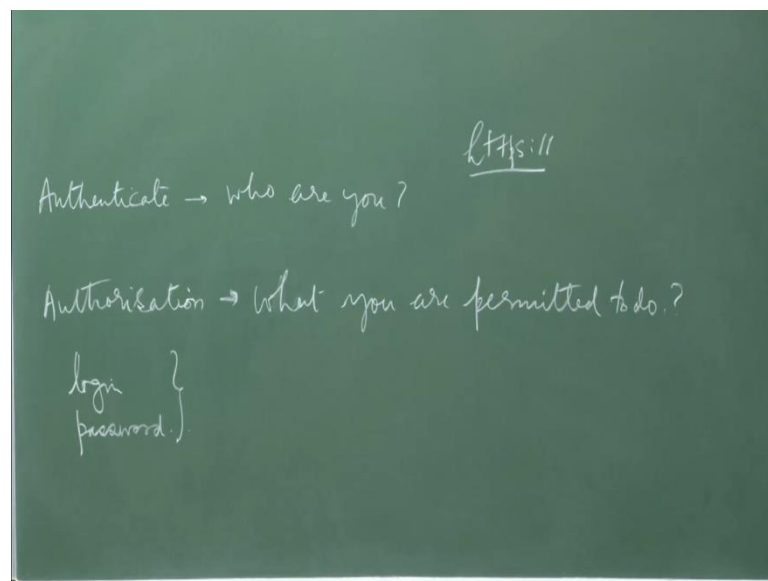 https://
Authenticate → who are you?
Authorisation → What you are permitted to do.?
login }
password. }.